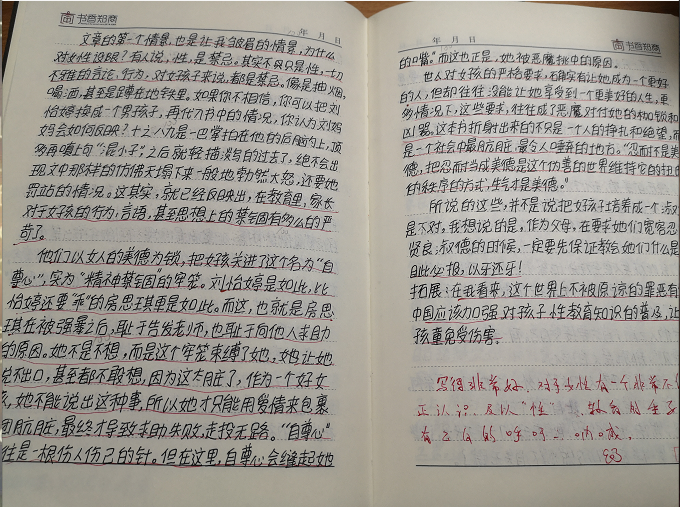 书香知商
年 月 日
文章的第一个情景,也是让我皱眉的情景,为什么
对女性设限?有人说,性,是禁忌。其实不只只是性,一切
不雅的言论,行为,对女孩子来说,都是禁忌。像是抽烟,
喝酒,甚至是蹲在地铁里。如果你不相信,你可以把刘
怡婷换成一个男孩子,再代入书中的情况,你认为刘妈
妈会如何反映?十之八九是一巴掌拍在他的后脑勺上,顶
多再嗔上句“混小子”,之后就轻描淡写的过去了,绝不会出
现文中那样的仿佛天塌下来一般地勃然大怒,还要她
罚站的情况。这其实,就已经反映出,在教育里,家长
对于女孩的行为,言语,甚至思想上的禁锢有多么的严
苛了。
他们以女人的美德为锁,把女孩关进了这个名为“自
尊心”,实为“精神禁锢”的牢笼。刘怡婷是如此,比
怡婷还要“乖”的房思琪更是如此。而这,也就是房思
琪在被强暴之后,耻于告发老师,也耻于向他人求助
的原因。她不是不想,而是这个牢笼束缚了她,她让她
说不出口,甚至都不敢想,因为这太脏了,作为一个好女
孩,她不能说出这种事,所以她才只能用爱情来包裹
团肮脏,最终才导致求助失败,走投无路。“自尊心”
往是一根伤人伤己的针。但在这里,自尊心会缝起她
年 月 日
书香知商
的口嘴”。而这也正是,她被恶魔挑中的原因。
世人对女孩的严格要求,石确实有让她成为一个更好
的人,但却往往没能让她享受到一个更美好的人生,更
多情况下,这些要求,往往成了恶魔对付她的枷锁和
凶器。这本书折射出来的不只是一个人的挣扎和绝望,而
是一个社会中最肮脏,最令人唾弃的地方。“忍耐不是美
德,把忍耐当成美德是这个伪善的世界维持它的扭曲
的秩序的方式,生气才是美德。”
所说的这些,并不是说把女孩子培养成一个淑
是不对,我想说的是,作为父母,在要求她们宽容忍
贤良淑德的时候,一定要先保证教会她们什么是
目此必报,以牙还牙!
拓展:在我看来,这个世界上不被原谅的罪恶有
中国应该加强对孩子性教育知识的普及,让
孩童免受伤害。
写得非常好,对于女性有一个非常
正认识,及以“性”